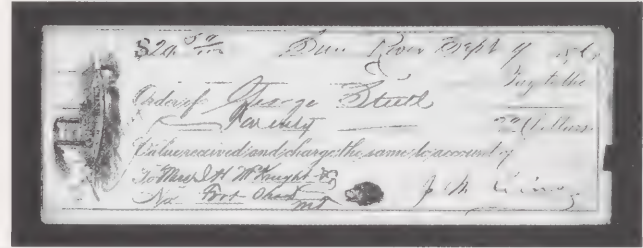 $20 50/100 Sun River Sept 9
Pay to the
Order of George Steell
Twenty Dollars
Value received and charge the same to account of
To Mess J H McKnight & Co
No. Fort Shaw
MT
J M